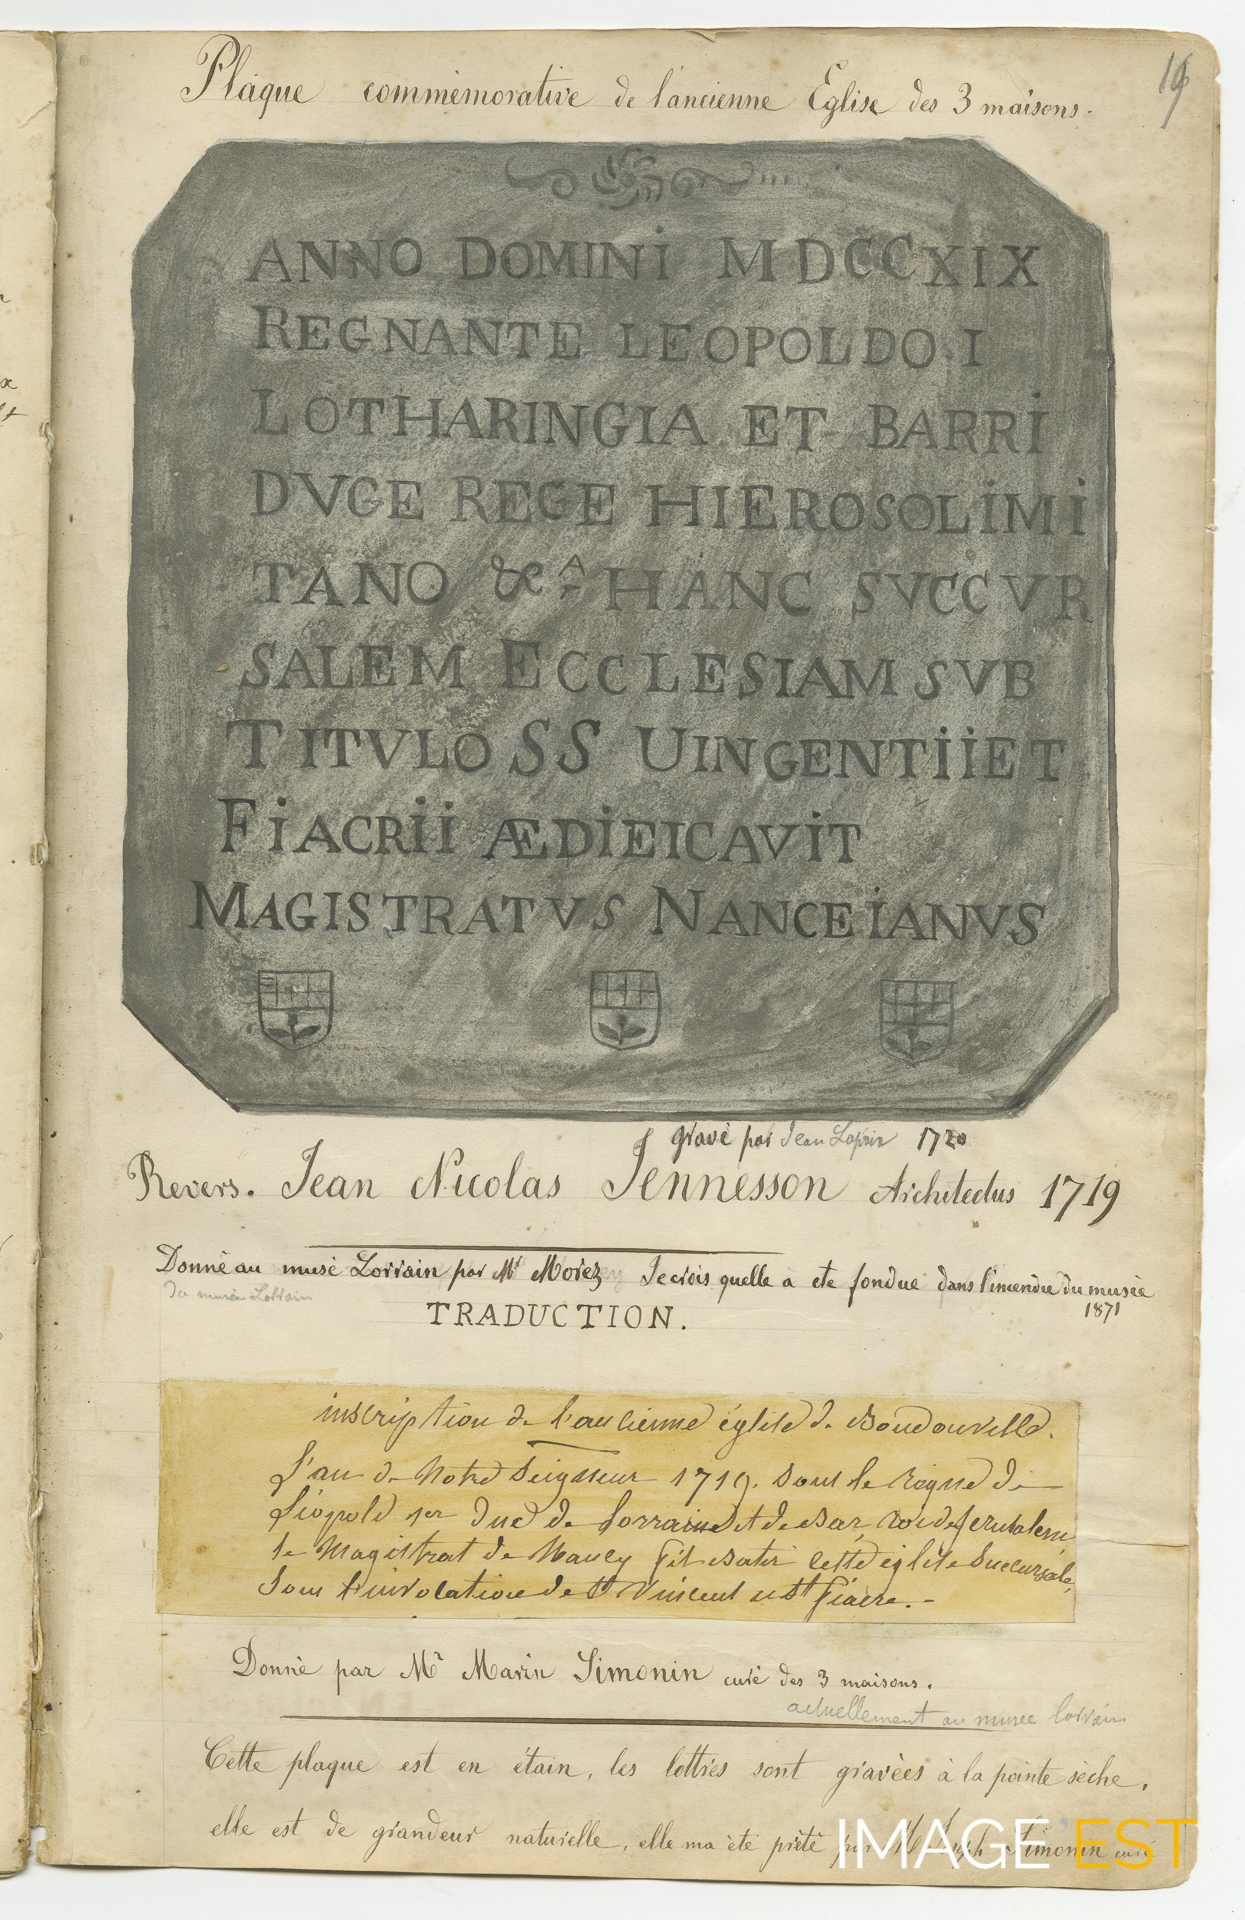 19
Plaque commémorative de l'ancienne Eglise des 3 maisons.
ANNO DOMINI MDCCXIX
REGNANTE LEOPOLDO I
LOTHARINGIA ET BARRI
DVCE REGE HIEROSOLIMI
TANO &A HANC SVCCVR
SALEM ECCLESIAM SVB
TITVLO SS UINGENTII ET
FIACRII ÆDIEICAVIT
MAGISTRATVS NANCEIANVS
gravé par Jean 1720
Revers. Jean Nicolas Jennesson Architectus 1719
Donné au musé Lorrain par Mr Morez Je crois quelle a ete fondue dans l'incendie du musée
du musée Lorrain
1871
TRADUCTION.
inscription de l'ancienne église de Boudonville.
L'an de Notre Seigneur 1719. sous le Règne de
Léopold 1er Duc de Lorraine et de Bar, Roi de Jerusalem
le Magistrat de Nancy fit Batir cette église succursale,
sous l'invocation de St Vincent et St fiacre. -
Donné par Mr Marin Simonin curé des 3 maisons.
actuellement au musee lorrain
Cette plaque est en étain, les lettres sont gravées à la pointe sèche,
elle est de grandeur naturelle, elle ma été prêté par Mr Joseph Simonin curé
IMAGE'EST